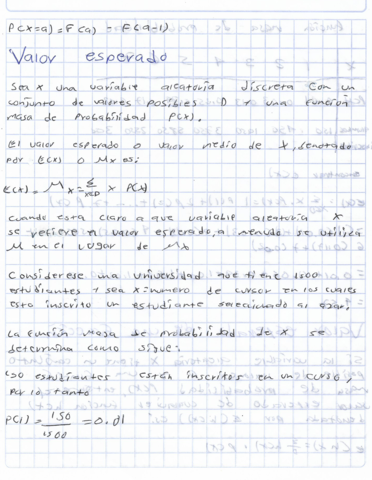 P(x=a)=F(a)-F(a-1)
Valor esperado
Sea x una variable aleatoria discreta con un
conjunto de valores posibles D y una función
masa de probabilidad P(x).
El valor esperado o valor medio de X, denotado
por E(x) o Mx es:
E(x) = Mx = Σ x∈D x P(x)
cuando esta claro a que variable aleatoria X
se refiere el valor esperado, a menudo se utiliza
M en el lugar de Mx
Considerese una universidad que tiene 1500
estudiantes y sea x=numero de cursor en los cuales
esta inscrito un estudiante seleccionado al azar.
La función masa de probabilidad de x se
determina como sigue:
150 estudiantes están inscritos en un curso,
por lo tanto
P(1) = 150/1500 = 0.01